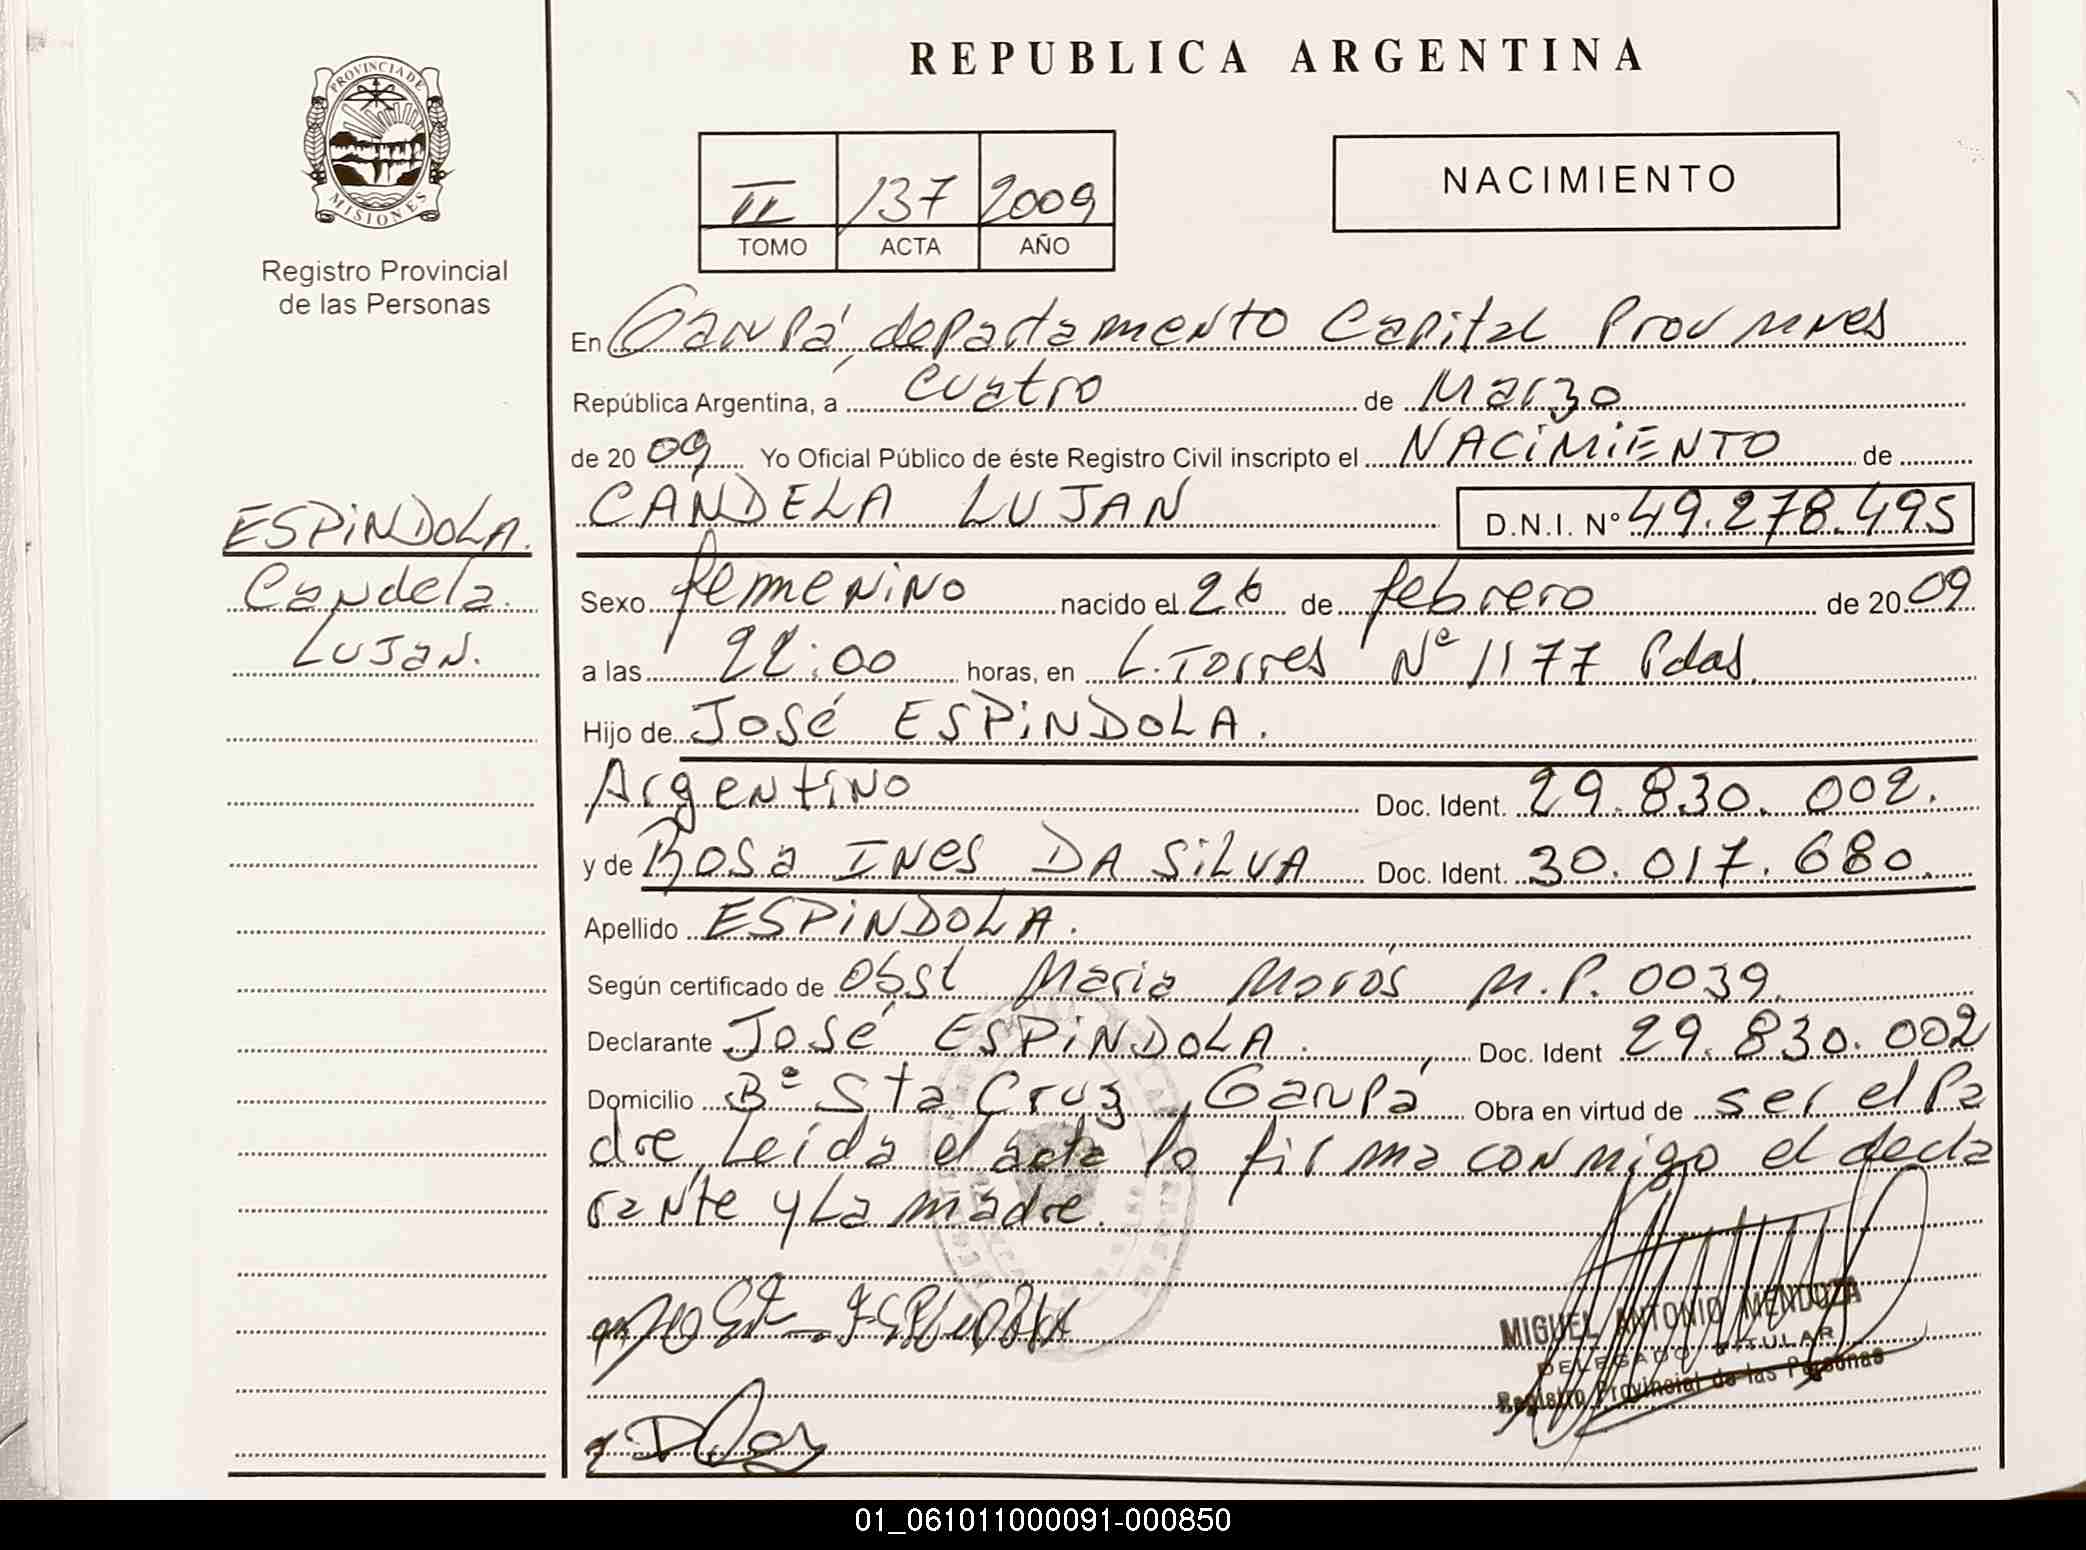 PROVINCIA DE
MISIONES
Registro Provincial
de las Personas
REPUBLICA ARGENTINA
II 137 2009
TOMO ACTA AÑO
NACIMIENTO
En Garupá, departamento Capital Prov Mnes
República Argentina, a cuatro de Marzo
de 20 09 Yo Oficial Público de éste Registro Civil inscripto el NACIMIENTO de
CANDELA LUJAN D.N.I. Nº 49.278.495
ESPINDOLA.
Candela
Lujan.
Sexo femenino nacido el 26 de febrero de 20 09
a las 22:00 horas, en L. Torres Nº 1177 Pdas.
Hijo de José ESPINDOLA.
Argentino Doc. Ident. 29.830.002.
y de Rosa INES DA SILVA Doc. Ident. 30.017.680.
Apellido ESPINDOLA.
Según certificado de Obst Maria Morós M.P. 0039.
Declarante José ESPINDOLA. Doc. Ident 29.830.002
Domicilio Bº Sta Cruz, Garupá Obra en virtud de ser el Pa
dre, Leída el acta lo firma conmigo el decla
rante y La madre.
MIGUEL ANTONIO MENDOZA
DELEGADO TITULAR
Registro Provincial de las Personas
01_061011000091-000850